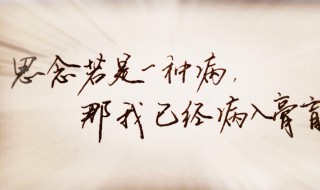 思念若是一种病,
那我已经病入膏肓